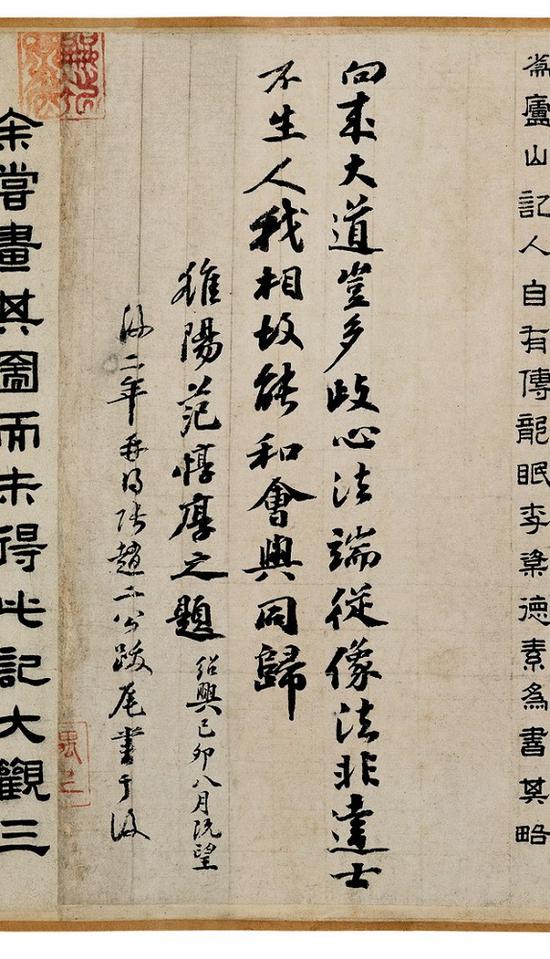 廬山記人自有傳龍眠李粲德素為書其略
向來大道豈多歧心法端從像法非達士
不生人我相故能和會與同歸
睢陽范惇厚之題紹興己卯八月既望
後二年再得張趙二公跋尾書于後
余嘗畫其圖而未得此記大觀三